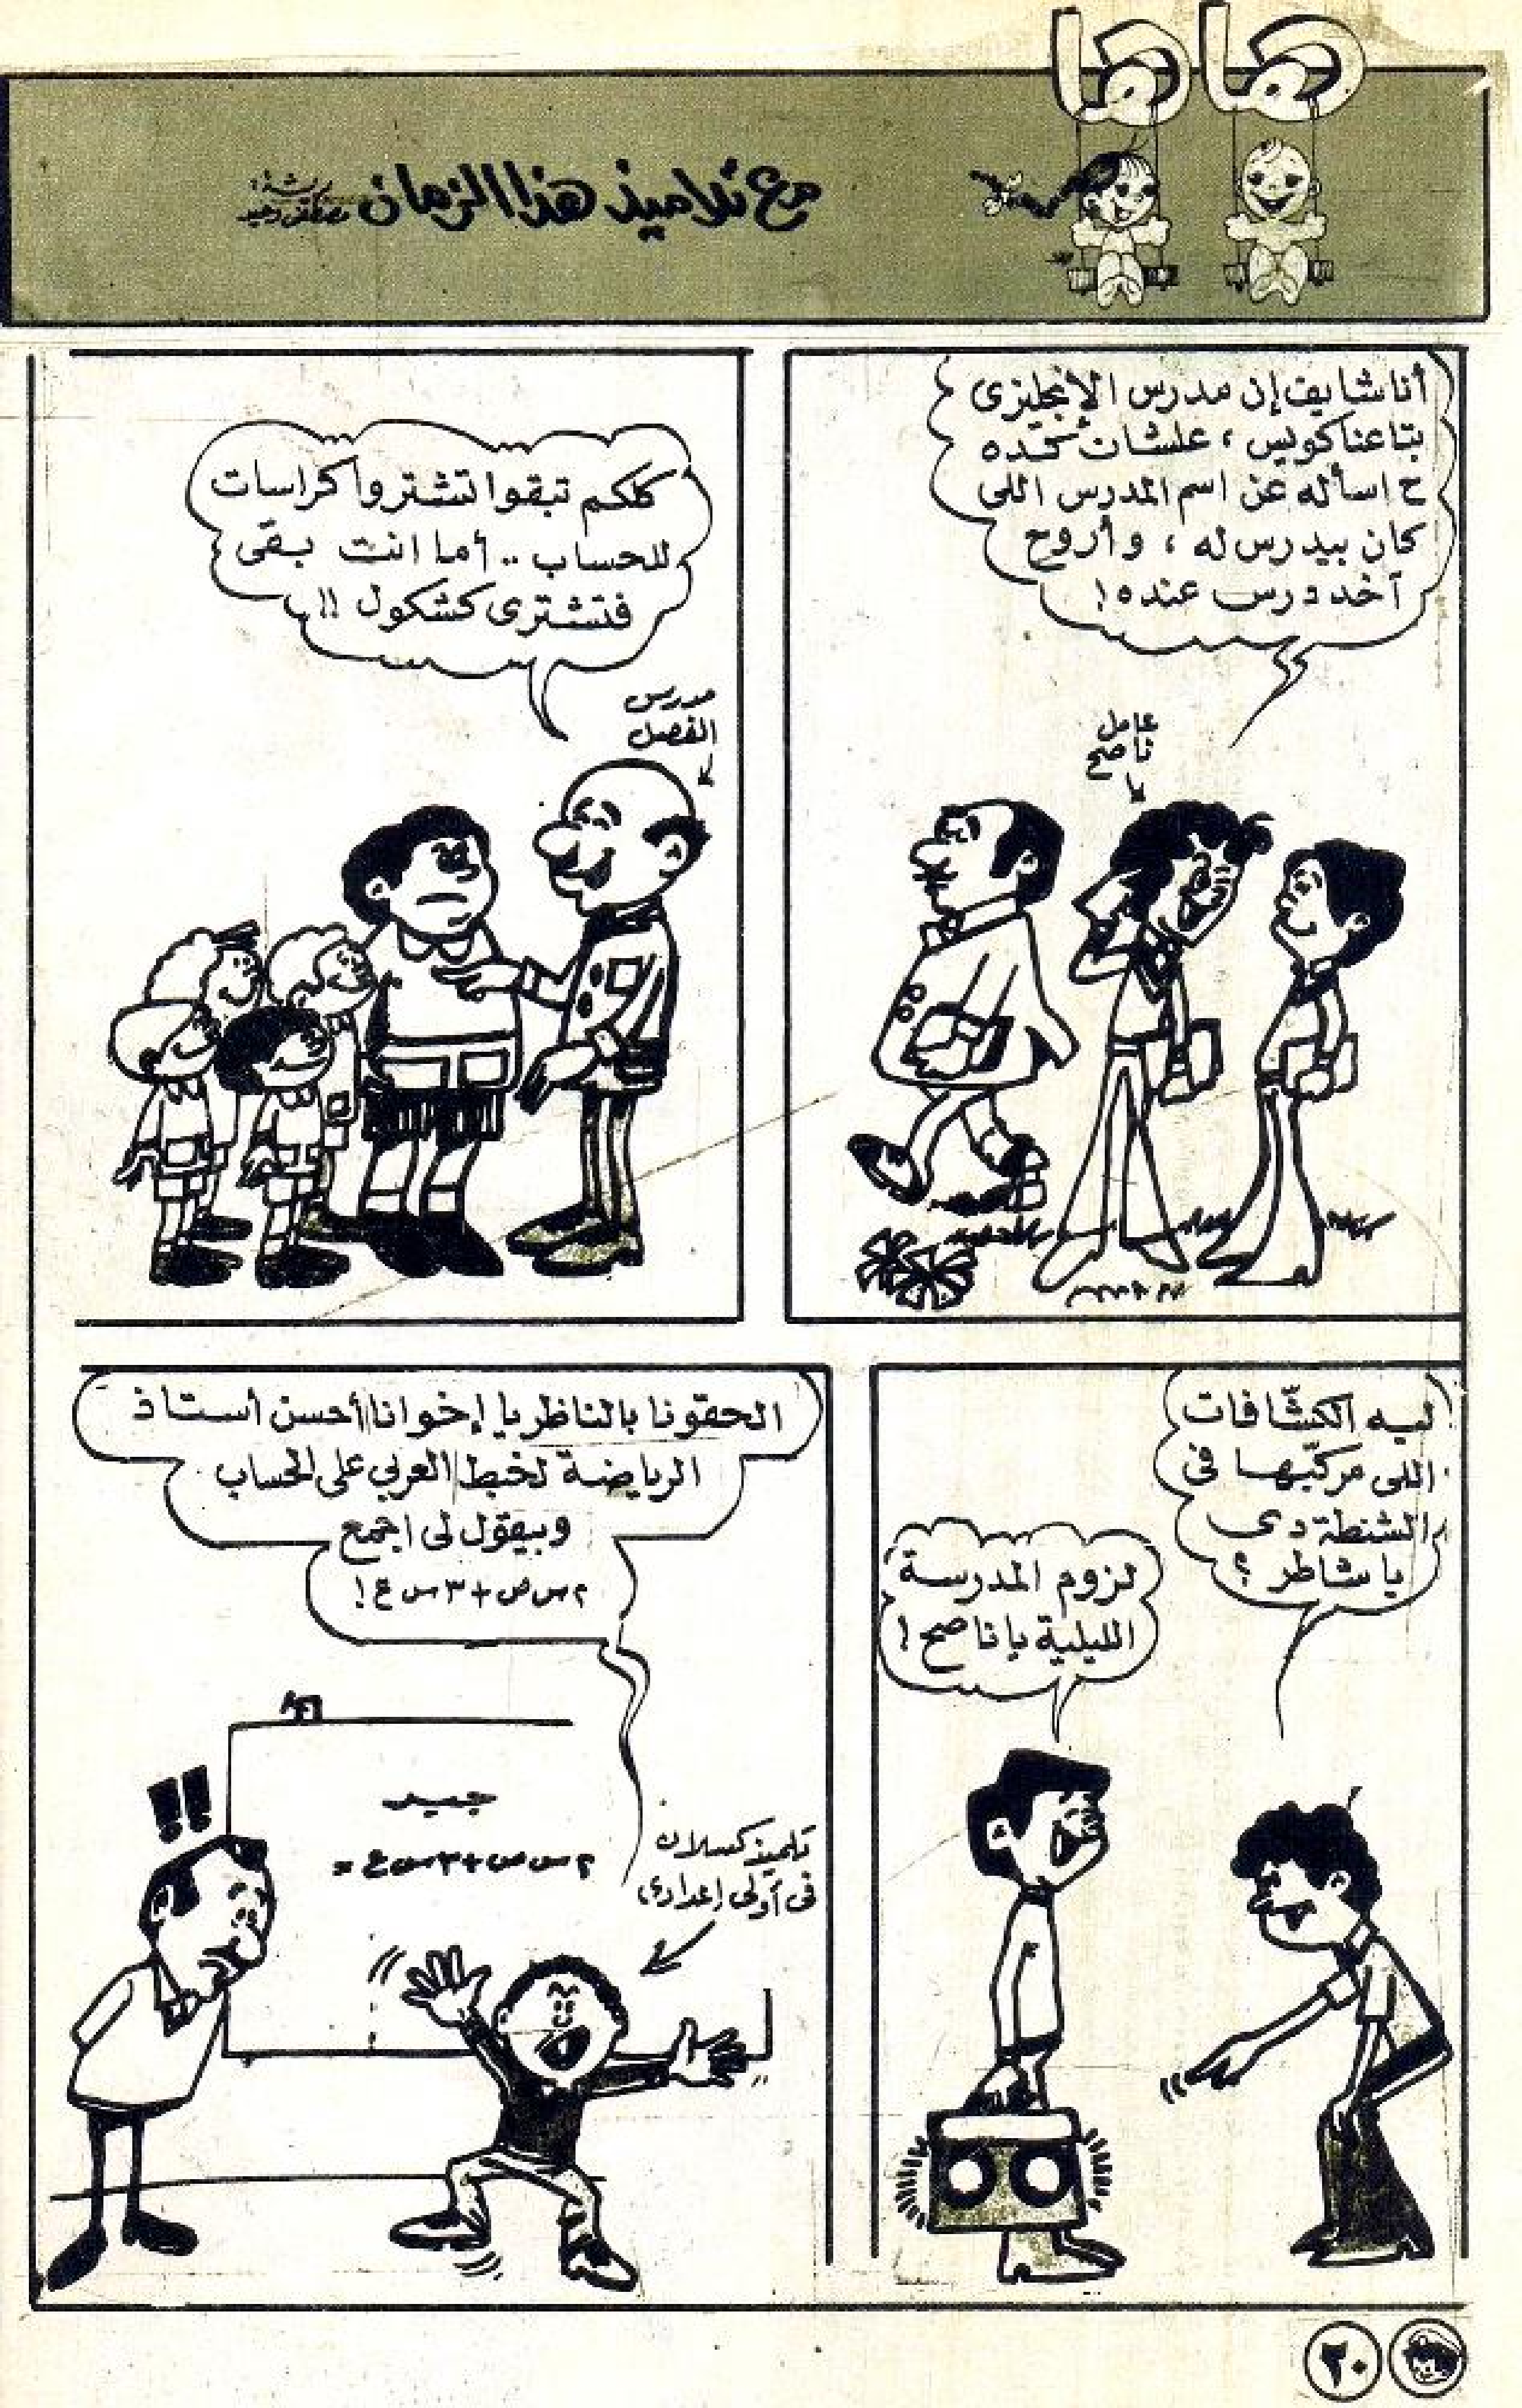 هاها
مع تلاميذ هذا الزمان
بريشة:
أنا شايف إن مدرس الإنجليزى
بتاعنا كويس ، علشان كده
ح اسأله عن اسم المدرس اللى
كان بيدرس له ، و أروح
آخد درس عنده !
عامل
ناصح
كلكم تبقوا تشتروا كراسات
للحساب .. أما انت بقى
فتشترى كشكول !!
مدرس
الفصل
ليه الكشّافات
اللى مركّبها فى
الشنطة دى
يا شاطر ؟
لزوم المدرسة
الليلية يا ناصح !
الحقونا بالناظر يا إخوانا أحسن أستاذ
الرياضة لخبط العربي على الحساب
وبيقول لى اجمع
٢ س ص + ٣ س ع !
!!
جبر
٢ س ص + ٣ س ع =
تلميذ كسلان
فى أولى إعدادى
٢٠